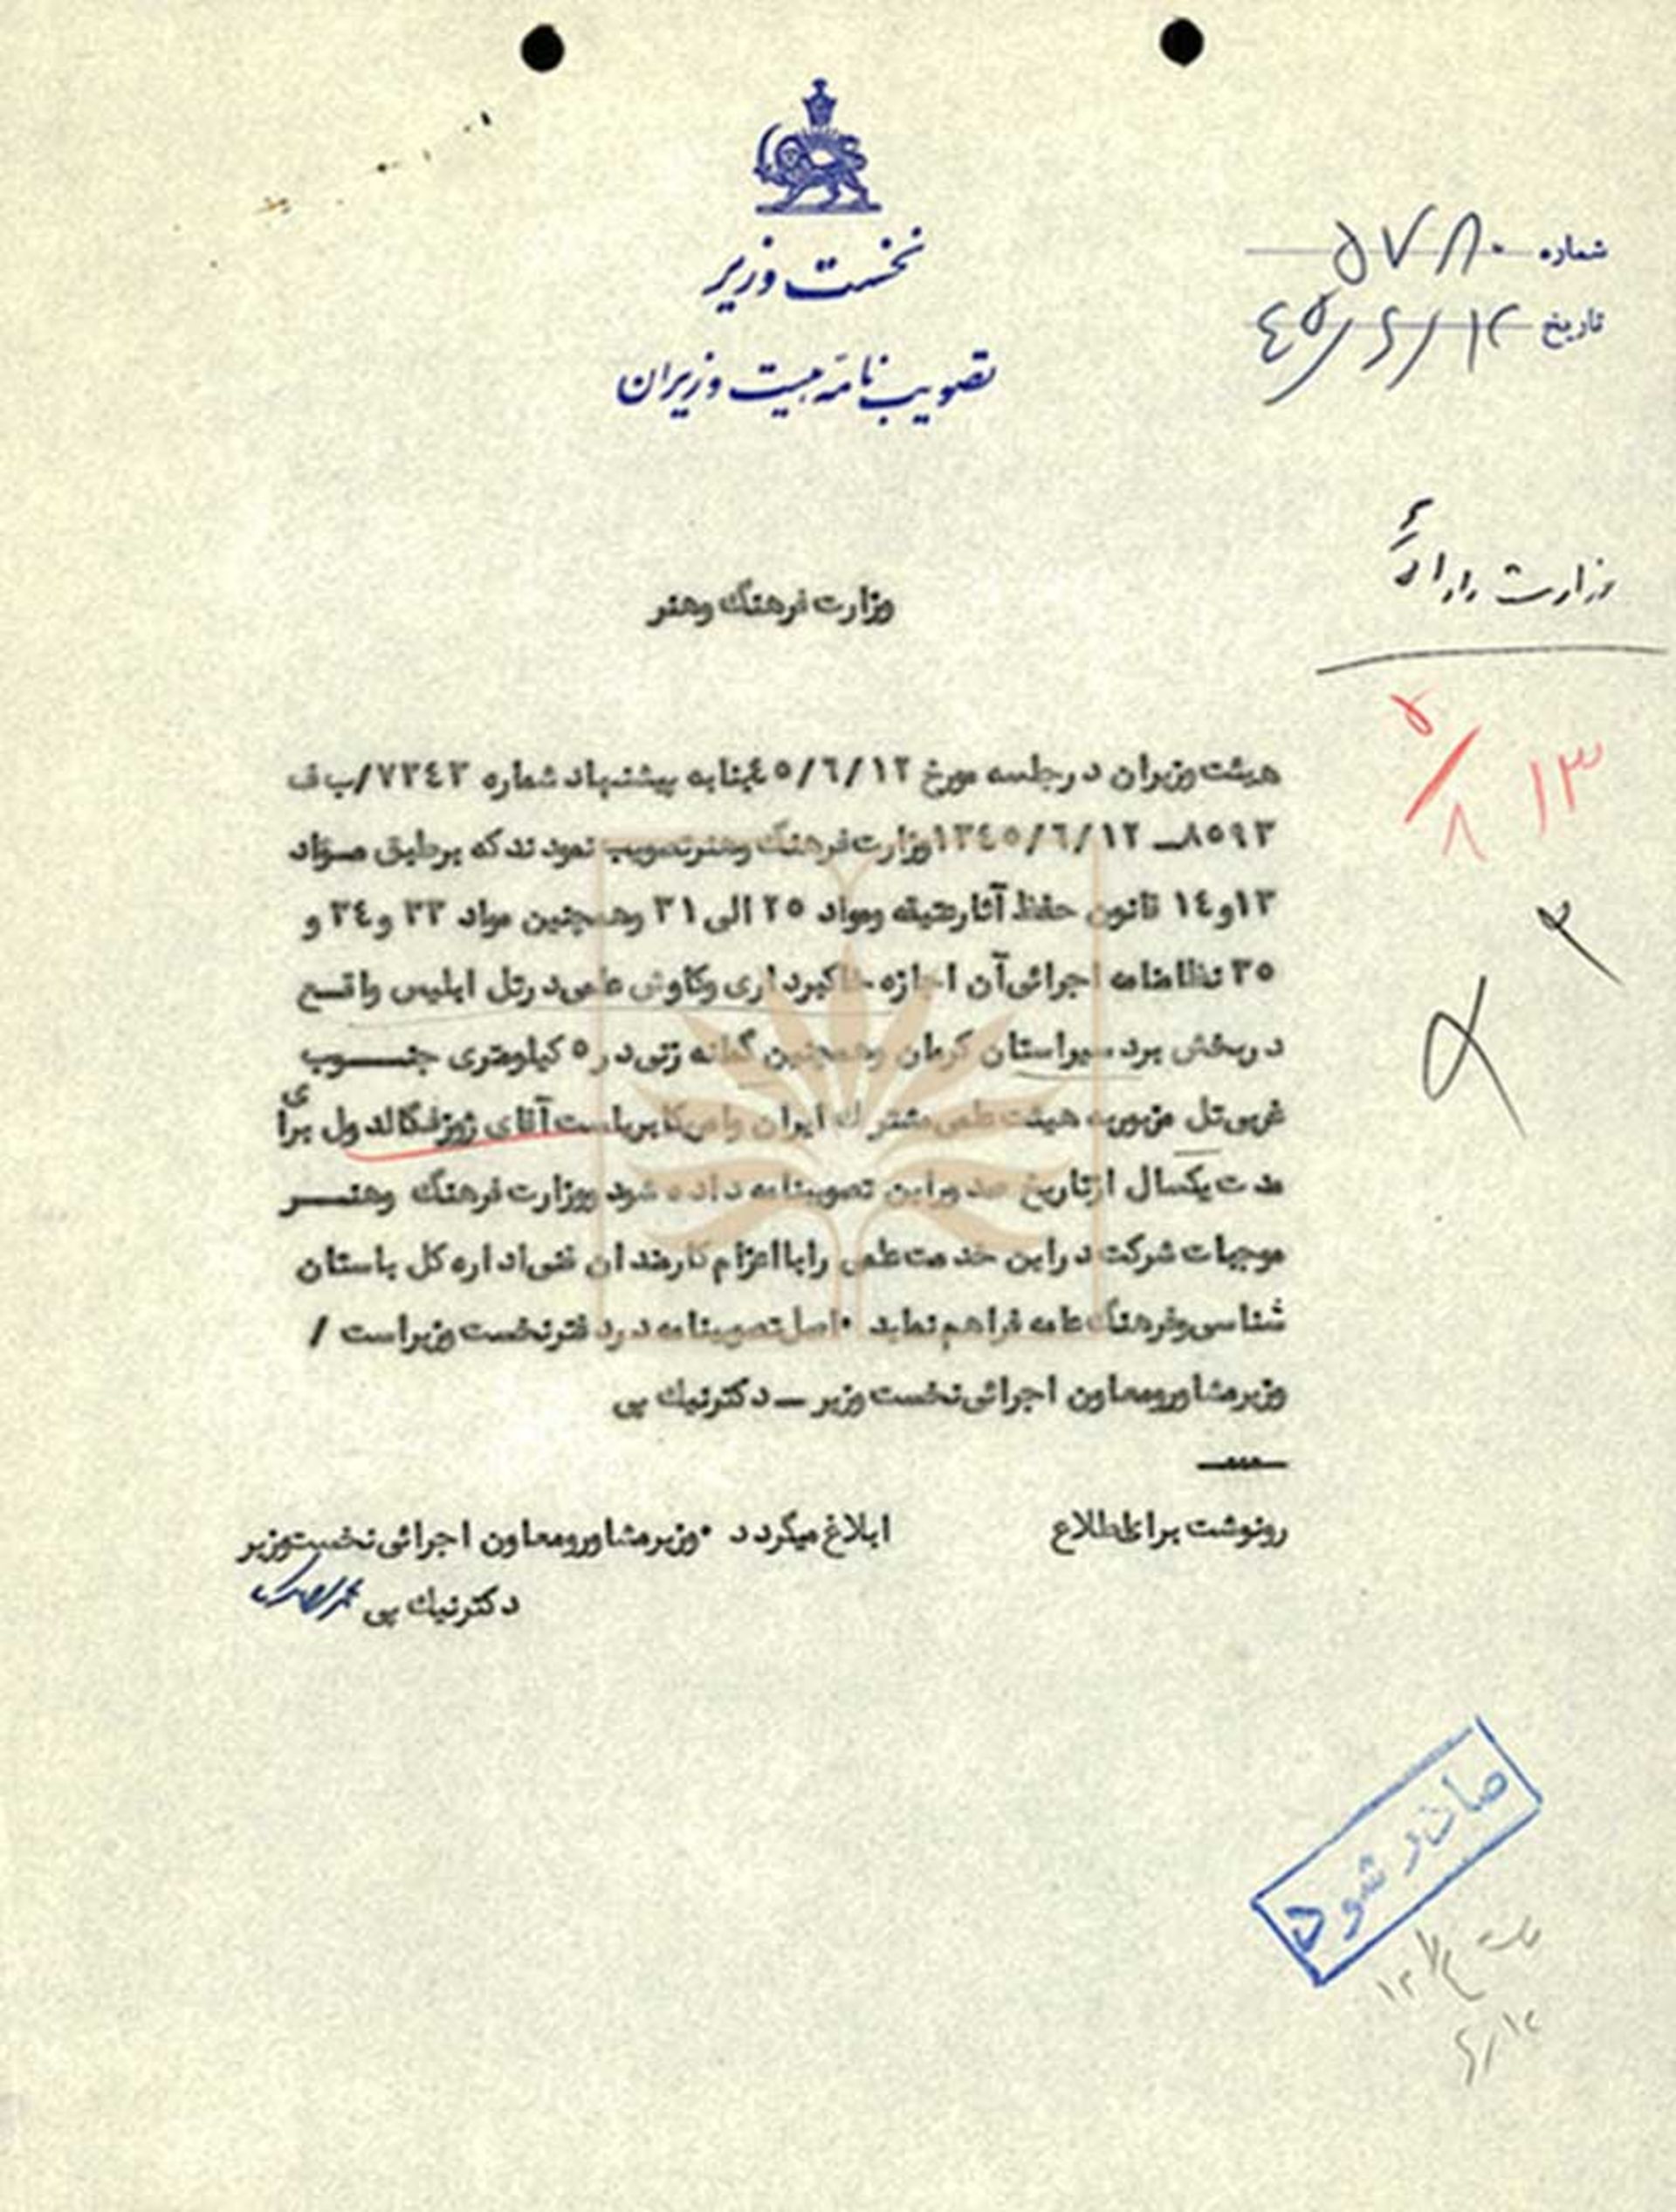 نخست وزیر
تصویب‌نامه هیئت وزیران
شماره ۵۷۸۰
تاریخ ۴۵/۶/۱۲
وزارت دارائی
وزارت فرهنگ وهنر
هیئت وزیران درجلسه مورخ ۴۵/۶/۱۲ بنابه پیشنهاد شماره ۷۳۴۳/ب ف
۸۵۹۳ــ ۱۳۴۵/۶/۱۲ وزارت فرهنگ وهنر تصویب نمودند که برطبق مواد
۱۳و۱۴ قانون حفظ آثارعتیقه ومواد ۲۵ الی ۳۱ وهمچنین مواد ۳۳ و۳۴ و
۳۵ نظامنامه اجرائی آن اجازه خاکبرداری وکاوش علمی درتل ابلیس واقع
دربخش بردسیراستان کرمان وهمچنین گمانه زنی در ۵ کیلومتری جنوب
غربی تل مزبوربه هیئت علمی مشترک ایران وامریکا بریاست آقای ژوزف گالدول برای
مدت یکسال ازتاریخ صدوراین تصویبنامه داده شود ووزارت فرهنگ وهنر
موجبات شرکت دراین خدمت علمی رابااعزام کارمندان فنی اداره کل باستان
شناسی وفرهنگ عامه فراهم نماید ۰ اصل تصویبنامه دردفترنخست وزیراست /
وزیرمشاورومعاون اجرائی نخست وزیر ــ دکترنیک پی
رونوشت برای اطلاع ابلاغ میگردد ۰ وزیرمشاورومعاون اجرائی نخست وزیر
دکترنیک پی
۱۳
۵/۸
صادر شود
۶/۱۲